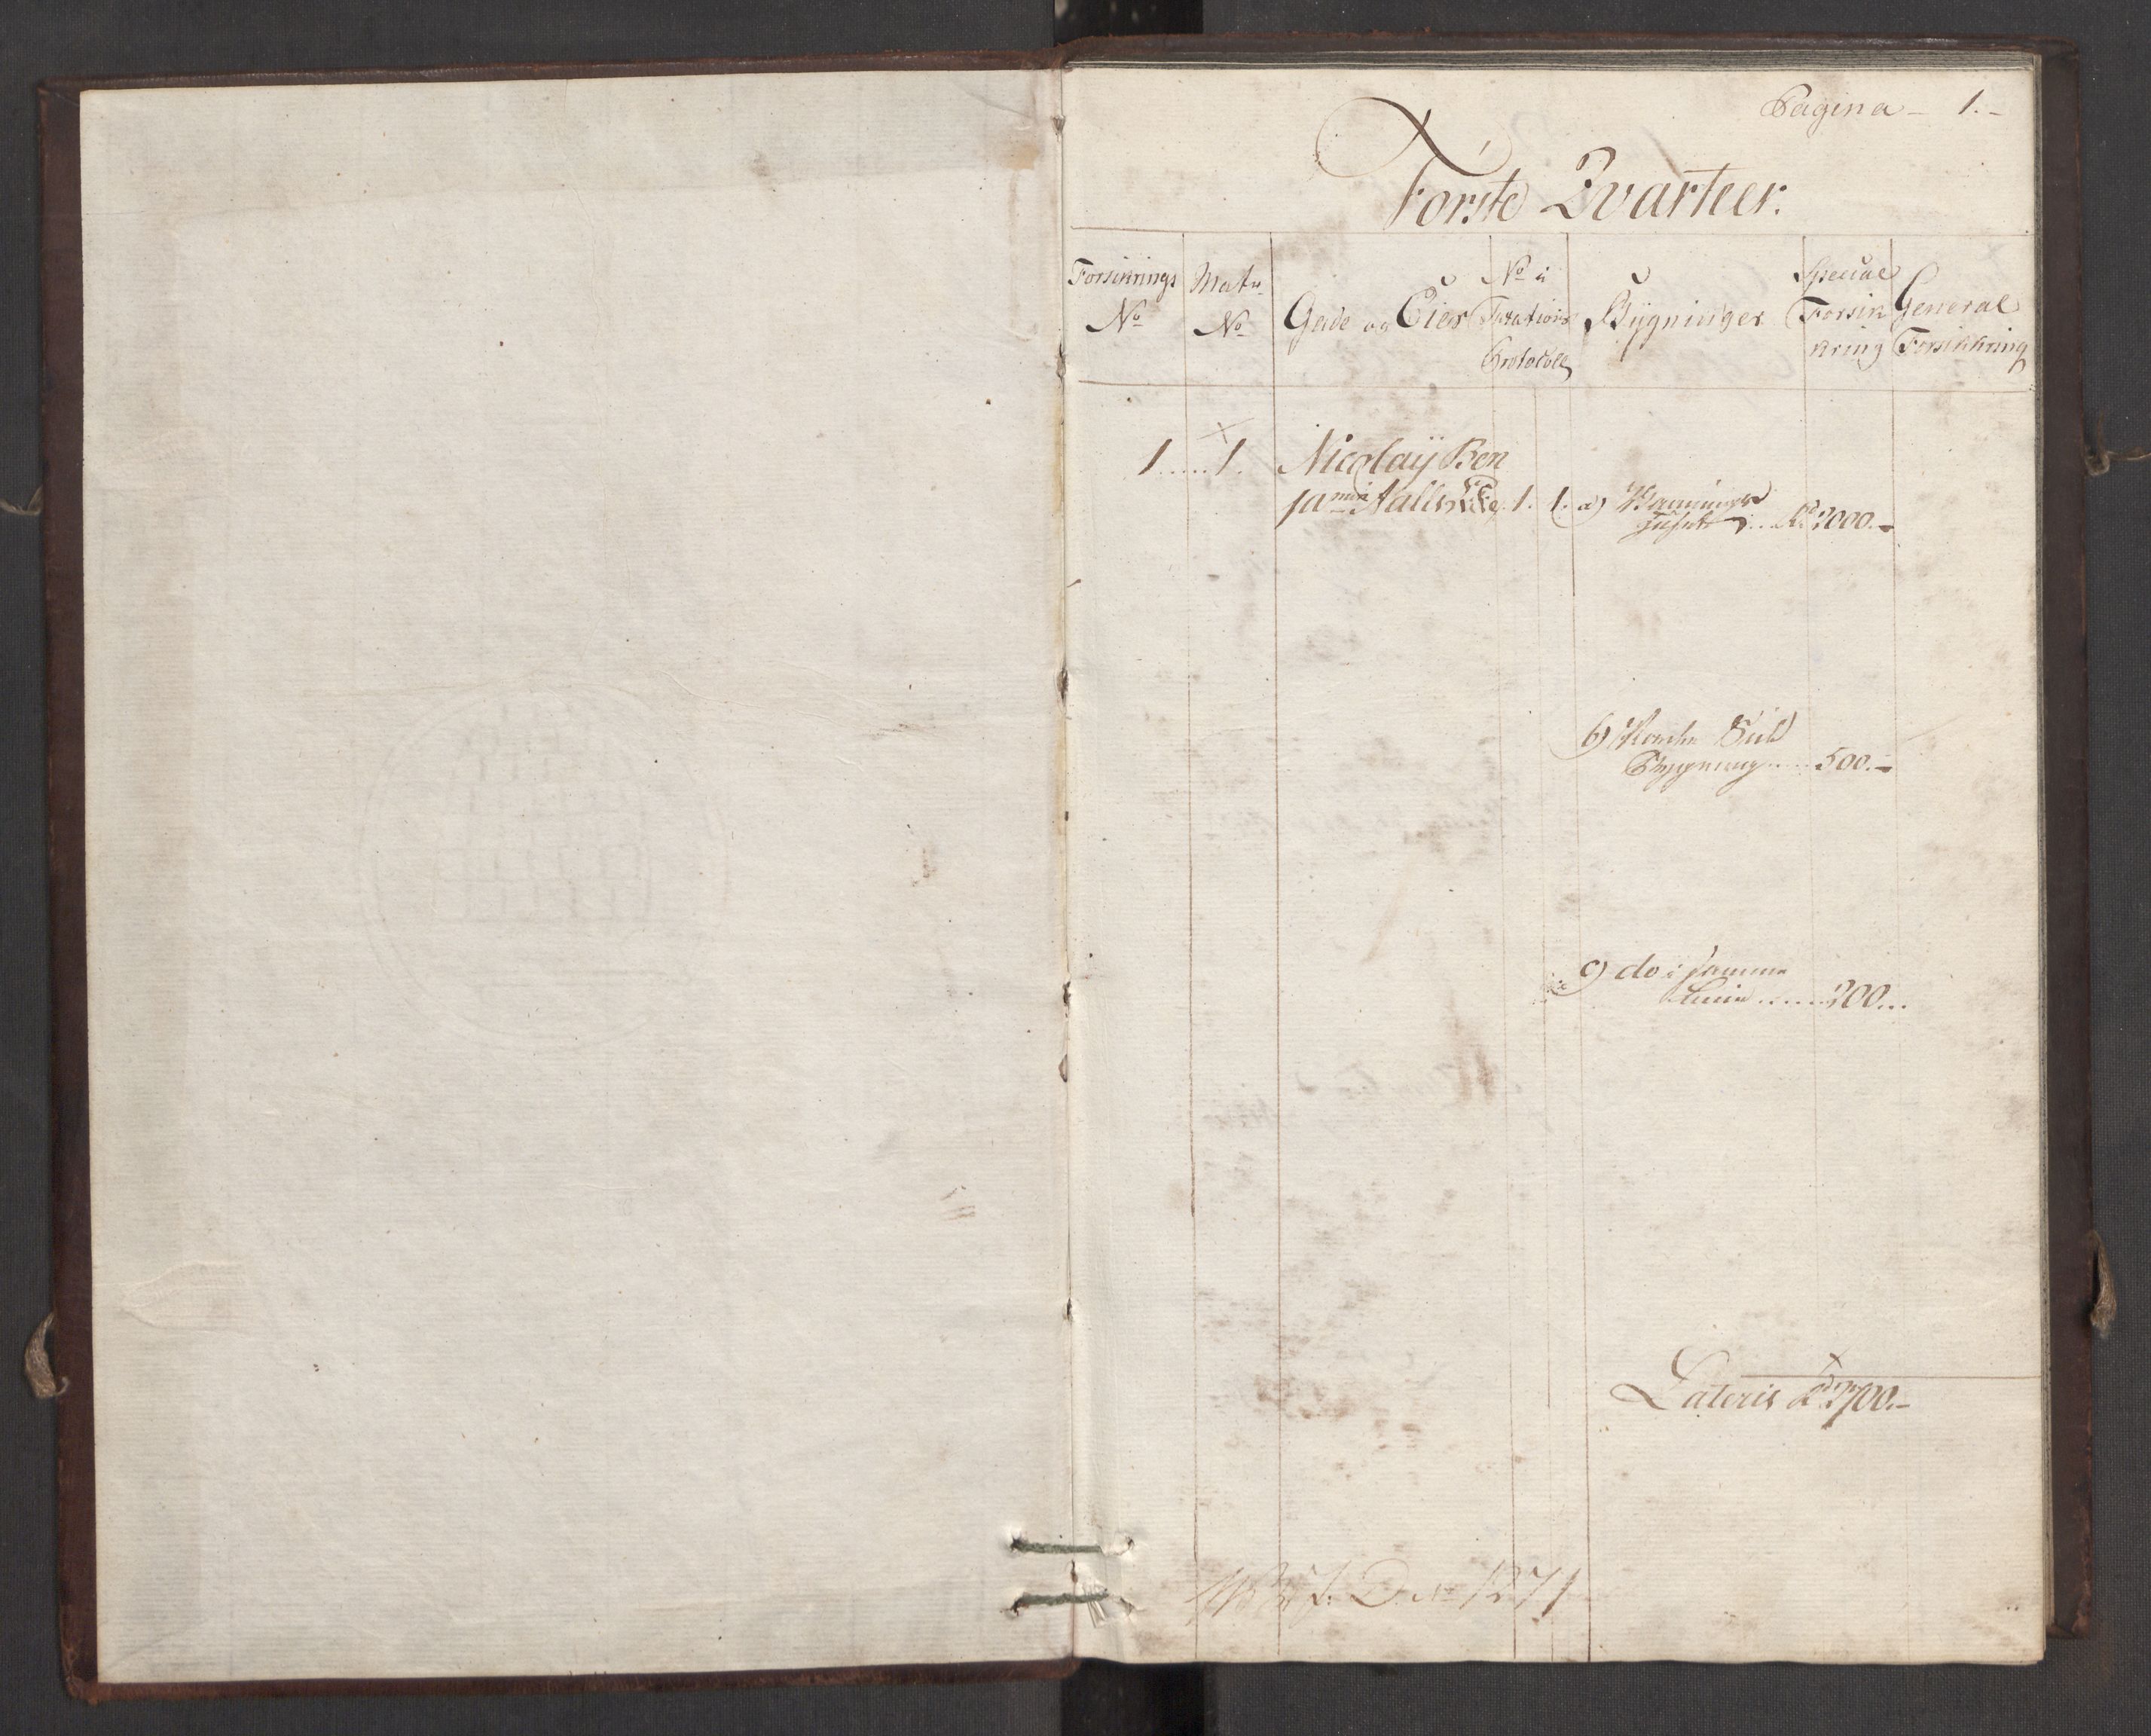 Pagina - 1.-
Første Qvarteer.
Forsikrings No
Matr. No
Gade og Eier
No i Taxations Protocoll
Bygninger
Special Forsikkring
General Forsikkring
1.....1. Nicolaÿ Ben
jamin Aall 1. 1. a) Vaanings
Huset ... Rd 2000.-
b) Norden Side
Bygning..... 500.-
c) do i samme
Linie ...... 200...
Lateris Rd 2700.-
D. No 1271